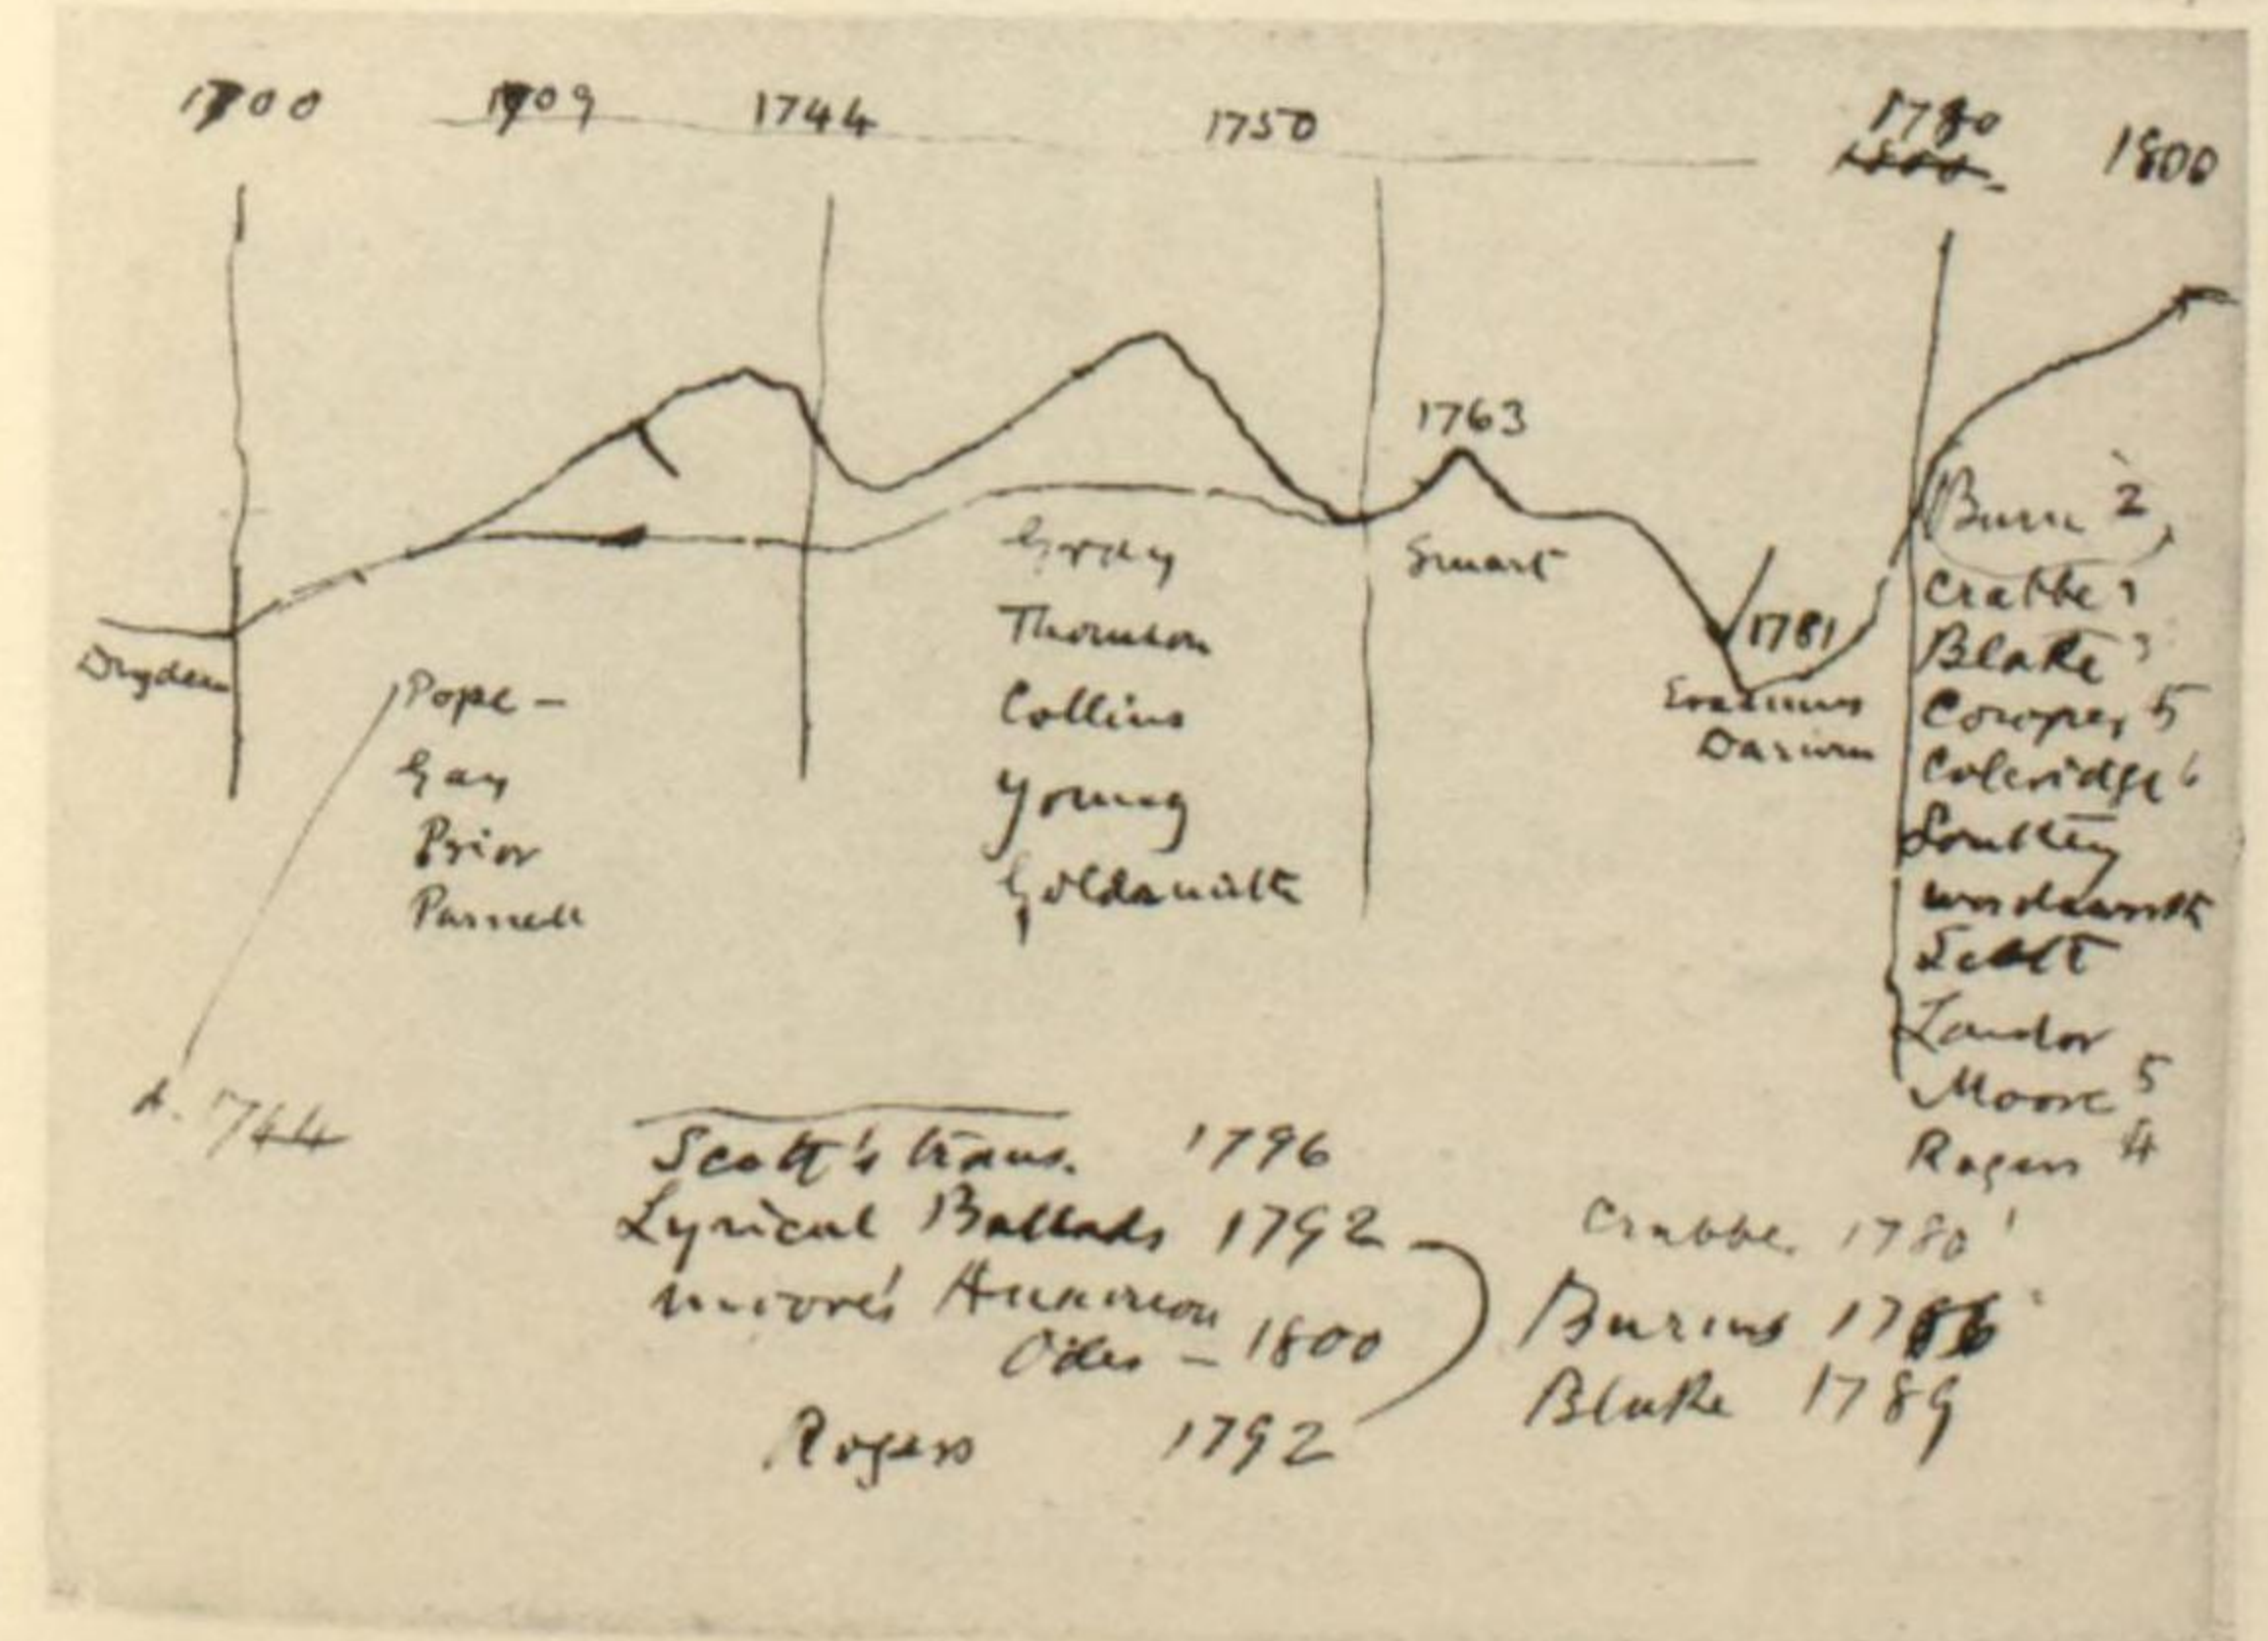 1700 1709 1744 1750 1780 1800
1763
Dryden
Pope –
Gay
Prior
Parnell
d. 1744
Gray
Thomson
Collins
Young
Goldsmith
Smart
1781
Erasmus
Darwin
Burns 2
Crabbe 1
Blake 3
Cowper 5
Coleridge 6
Southey
Wordsworth
Scott
Landor
Moore 5
Rogers 4
Scott's trans. 1796
Lyrical Ballads 1792
Moore's Anacreon
Odes – 1800
Rogers 1792
Crabbe. 1780 1
Burns 1786
Blake 1789